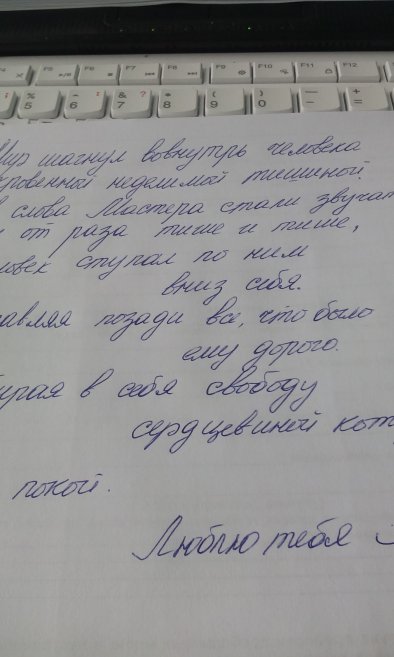 F5 F6 F7 F8 F9 F10 F11 F12
% 5 6 & 7 ? * 8 ( 9 ) 0 — + =
Мир шагнул вовнутрь человека
кровенной неделимой тишиной.
слова Мастера стали звучат
от раза тише и тише,
ловек ступал по ним
вниз себя.
авляя позади все, что было
ему дорого.
ирая в себя свободу
сердцевиной кот
покой.
Люблю тебя